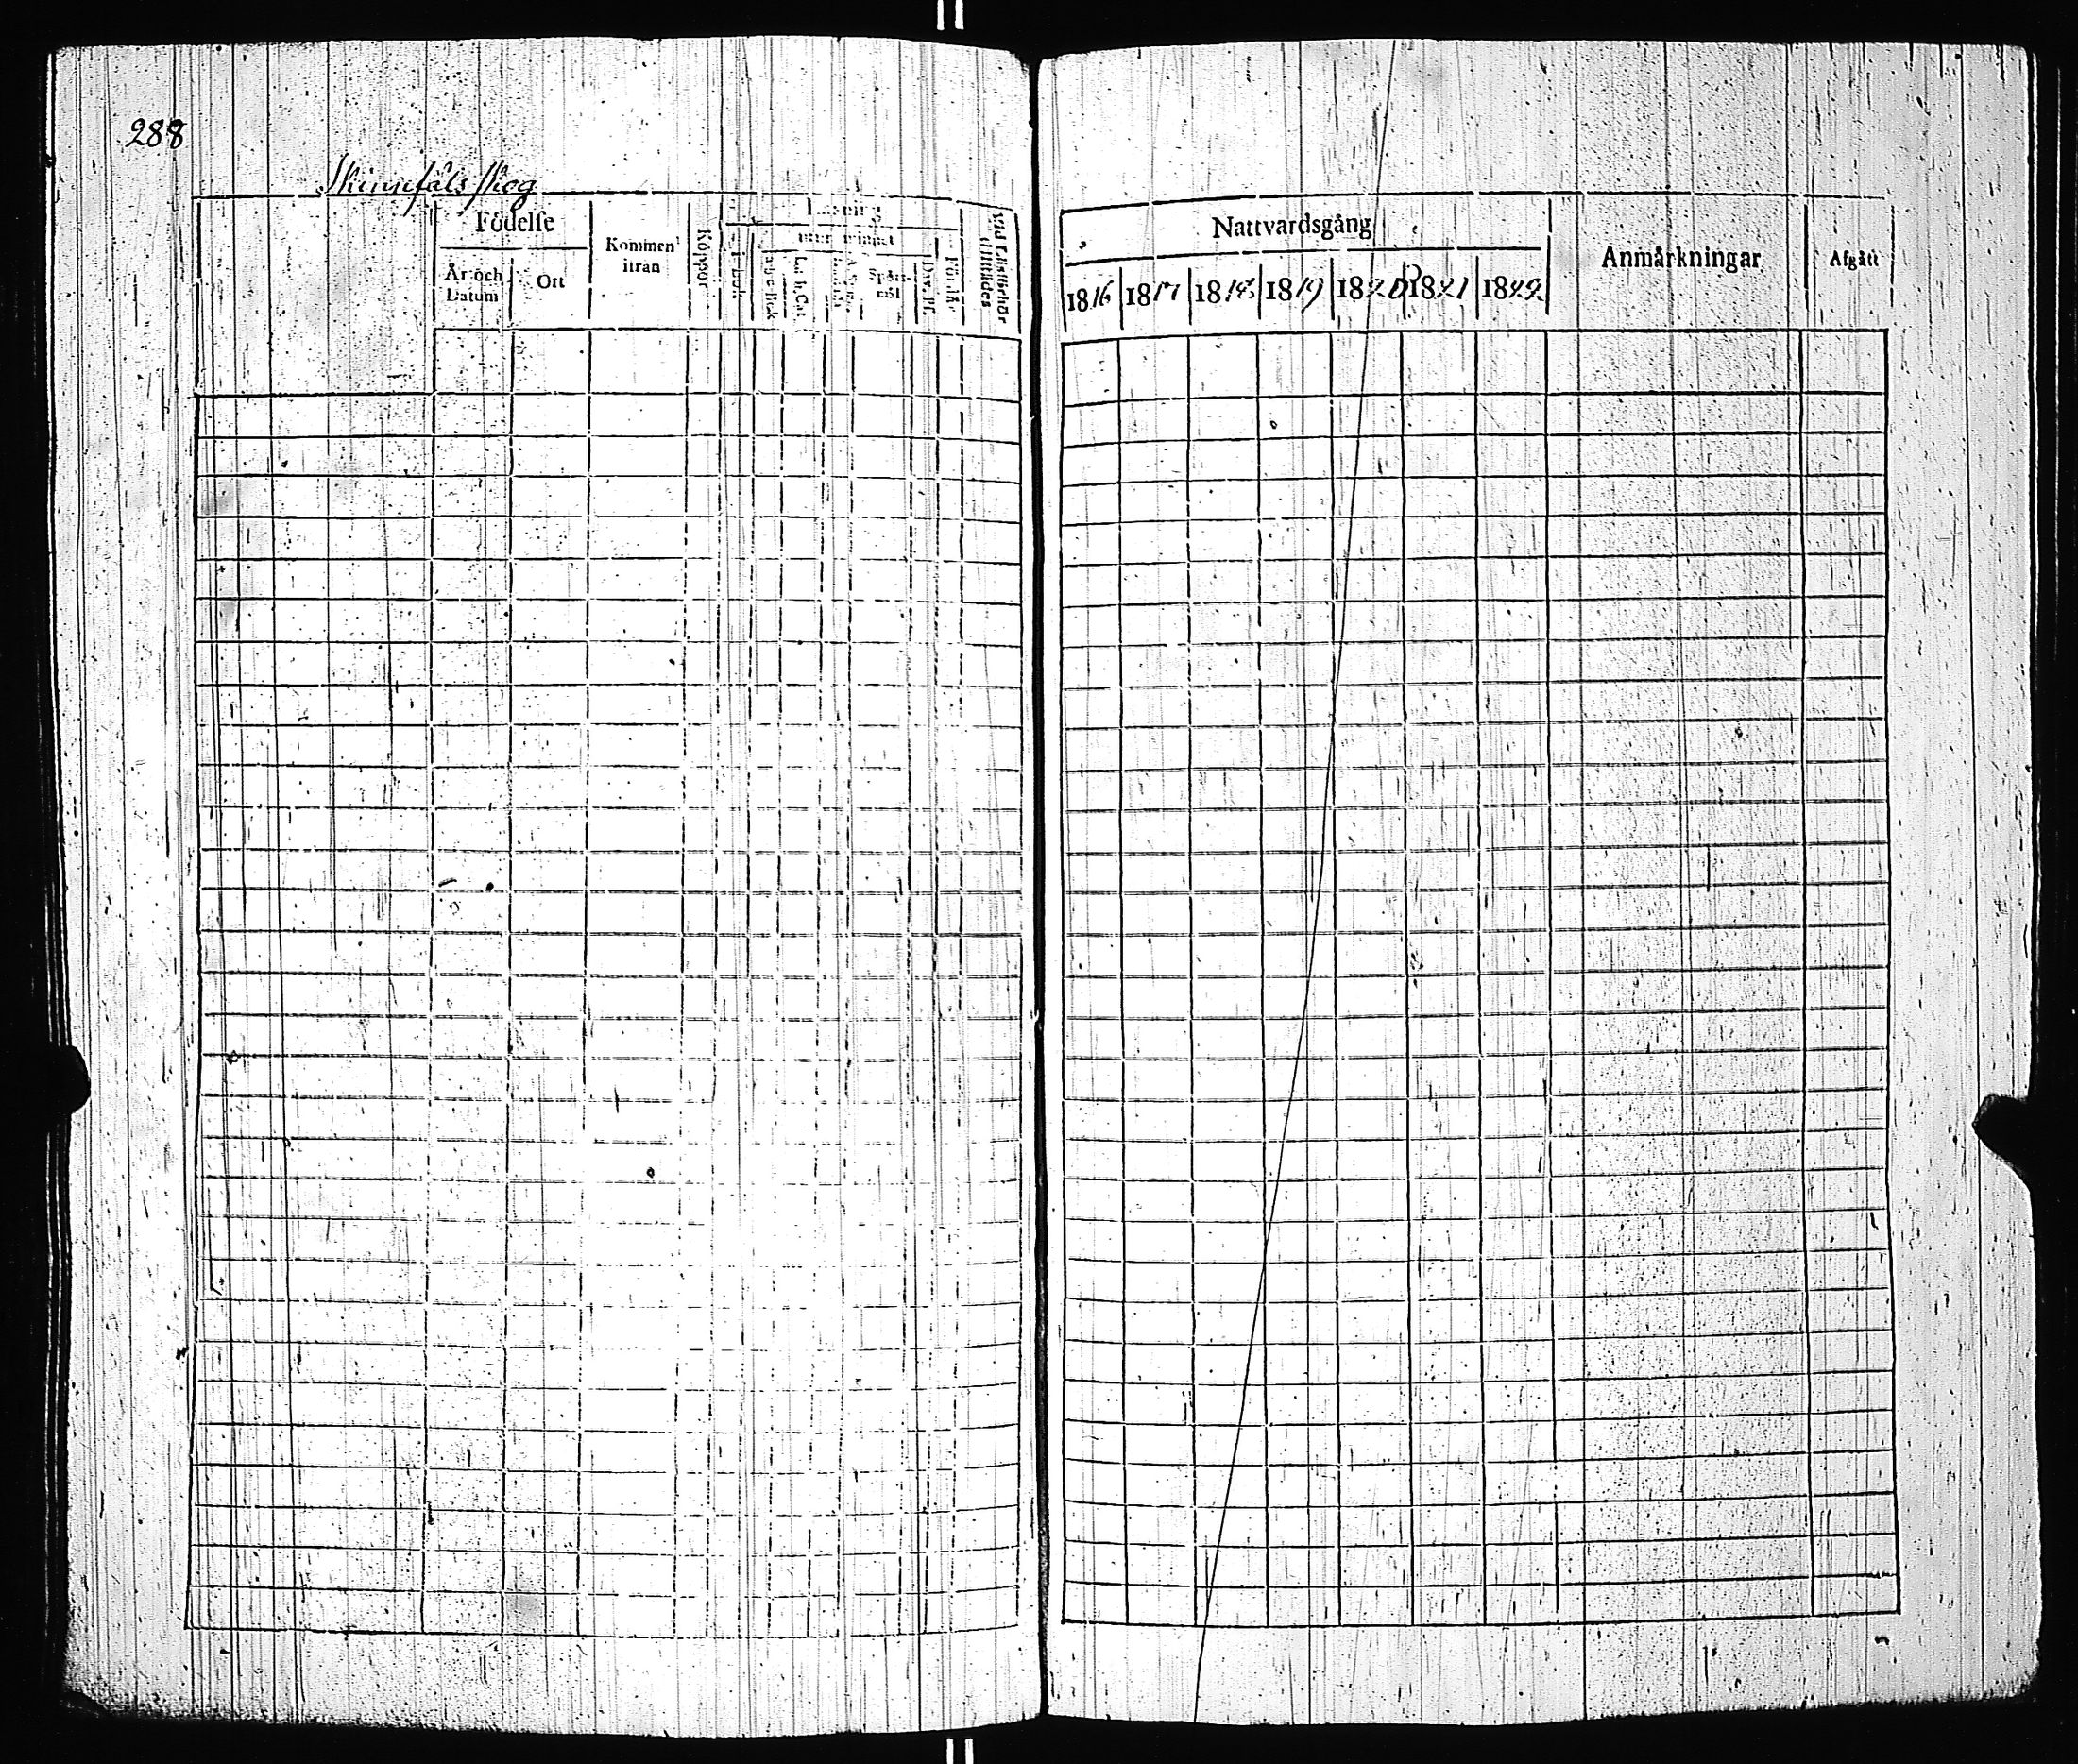 288
Skinnfäls skog
Födelse
År och Datum
Ort
Kommen ifrån
Koppor
Läsning
utur minnet
i Bok
Luth. Cat.
Spörsmål
Dav. Ps.
Förstår
Vid Husförhör tillstädes
Nattvardsgång
1816 1817 1818 1819 1820 1821 1822
Anmärkningar
Afgått